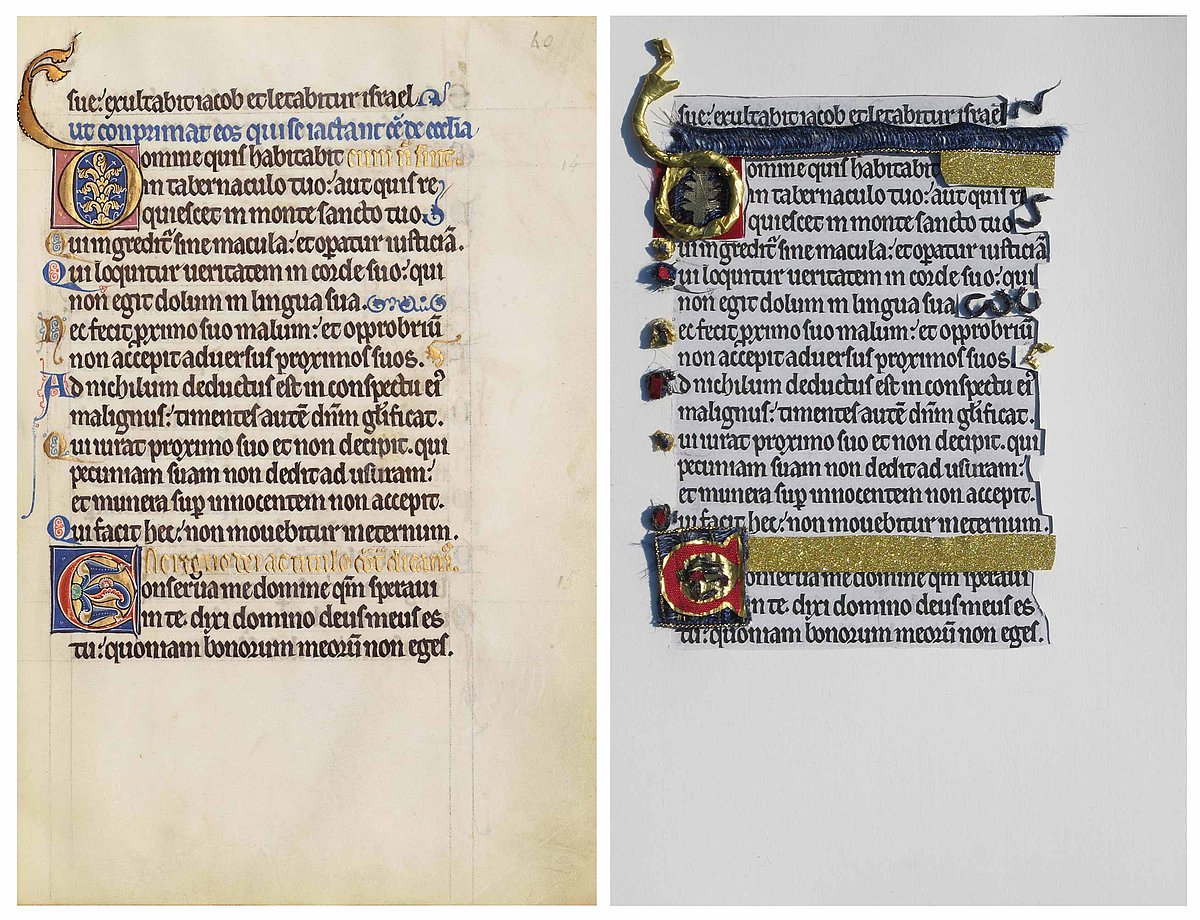 40
sue: exultabit iacob et letabitur israel
ut conprimat eos qui se iactant cē de ecclia
Domine quis habitabit
in tabernaculo tuo: aut quis re
quiescet in monte sancto tuo
Qui ingredit᷑ sine macula: et opatur iusticiā.
Qui loquitur ueritatem in corde suo: qui
non egit dolum in lingua sua.
Nec fecit pximo suo malum: et opprobriū
non accepit aduersus proximos suos.
Ad nichilum deductus est in conspectu ei᾽
malignus: timentes autē dn̄m glificat.
Qui iurat proximo suo et non decipit. qui
pecuniam suam non dedit ad usuram:
et munera sup innocentem non accepit.
Qui facit hec: non mouebitur in eternum.
Conserua me domine qm̄ speraui
in te. dixi domino deus meus es
tu: quoniam bonorum meorū non eges.
sue: exultabit iacob et letabitur israel
omine quis habitabit
in tabernaculo tuo: aut quis re
quiescet in monte sancto tuo
ui ingredit᷑ sine macula: et opatur iusticiā
ui loquitur ueritatem in corde suo: qui
non egit dolum in lingua sua
ec fecit pximo suo malum: et opprobriū
non accepit aduersus proximos suos.
d nichilum deductus est in conspectu ei᾽
malignus: timentes autē dn̄m glificat.
ui iurat proximo suo et non decipit. qui
pecuniam suam non dedit ad usuram:
et munera sup innocentem non accepit.
ui facit hec: non mouebitur in eternum.
Conserua me domine qm̄ speraui
in te. dixi domino deus meus es
tu: quoniam bonorum meorū non eges.